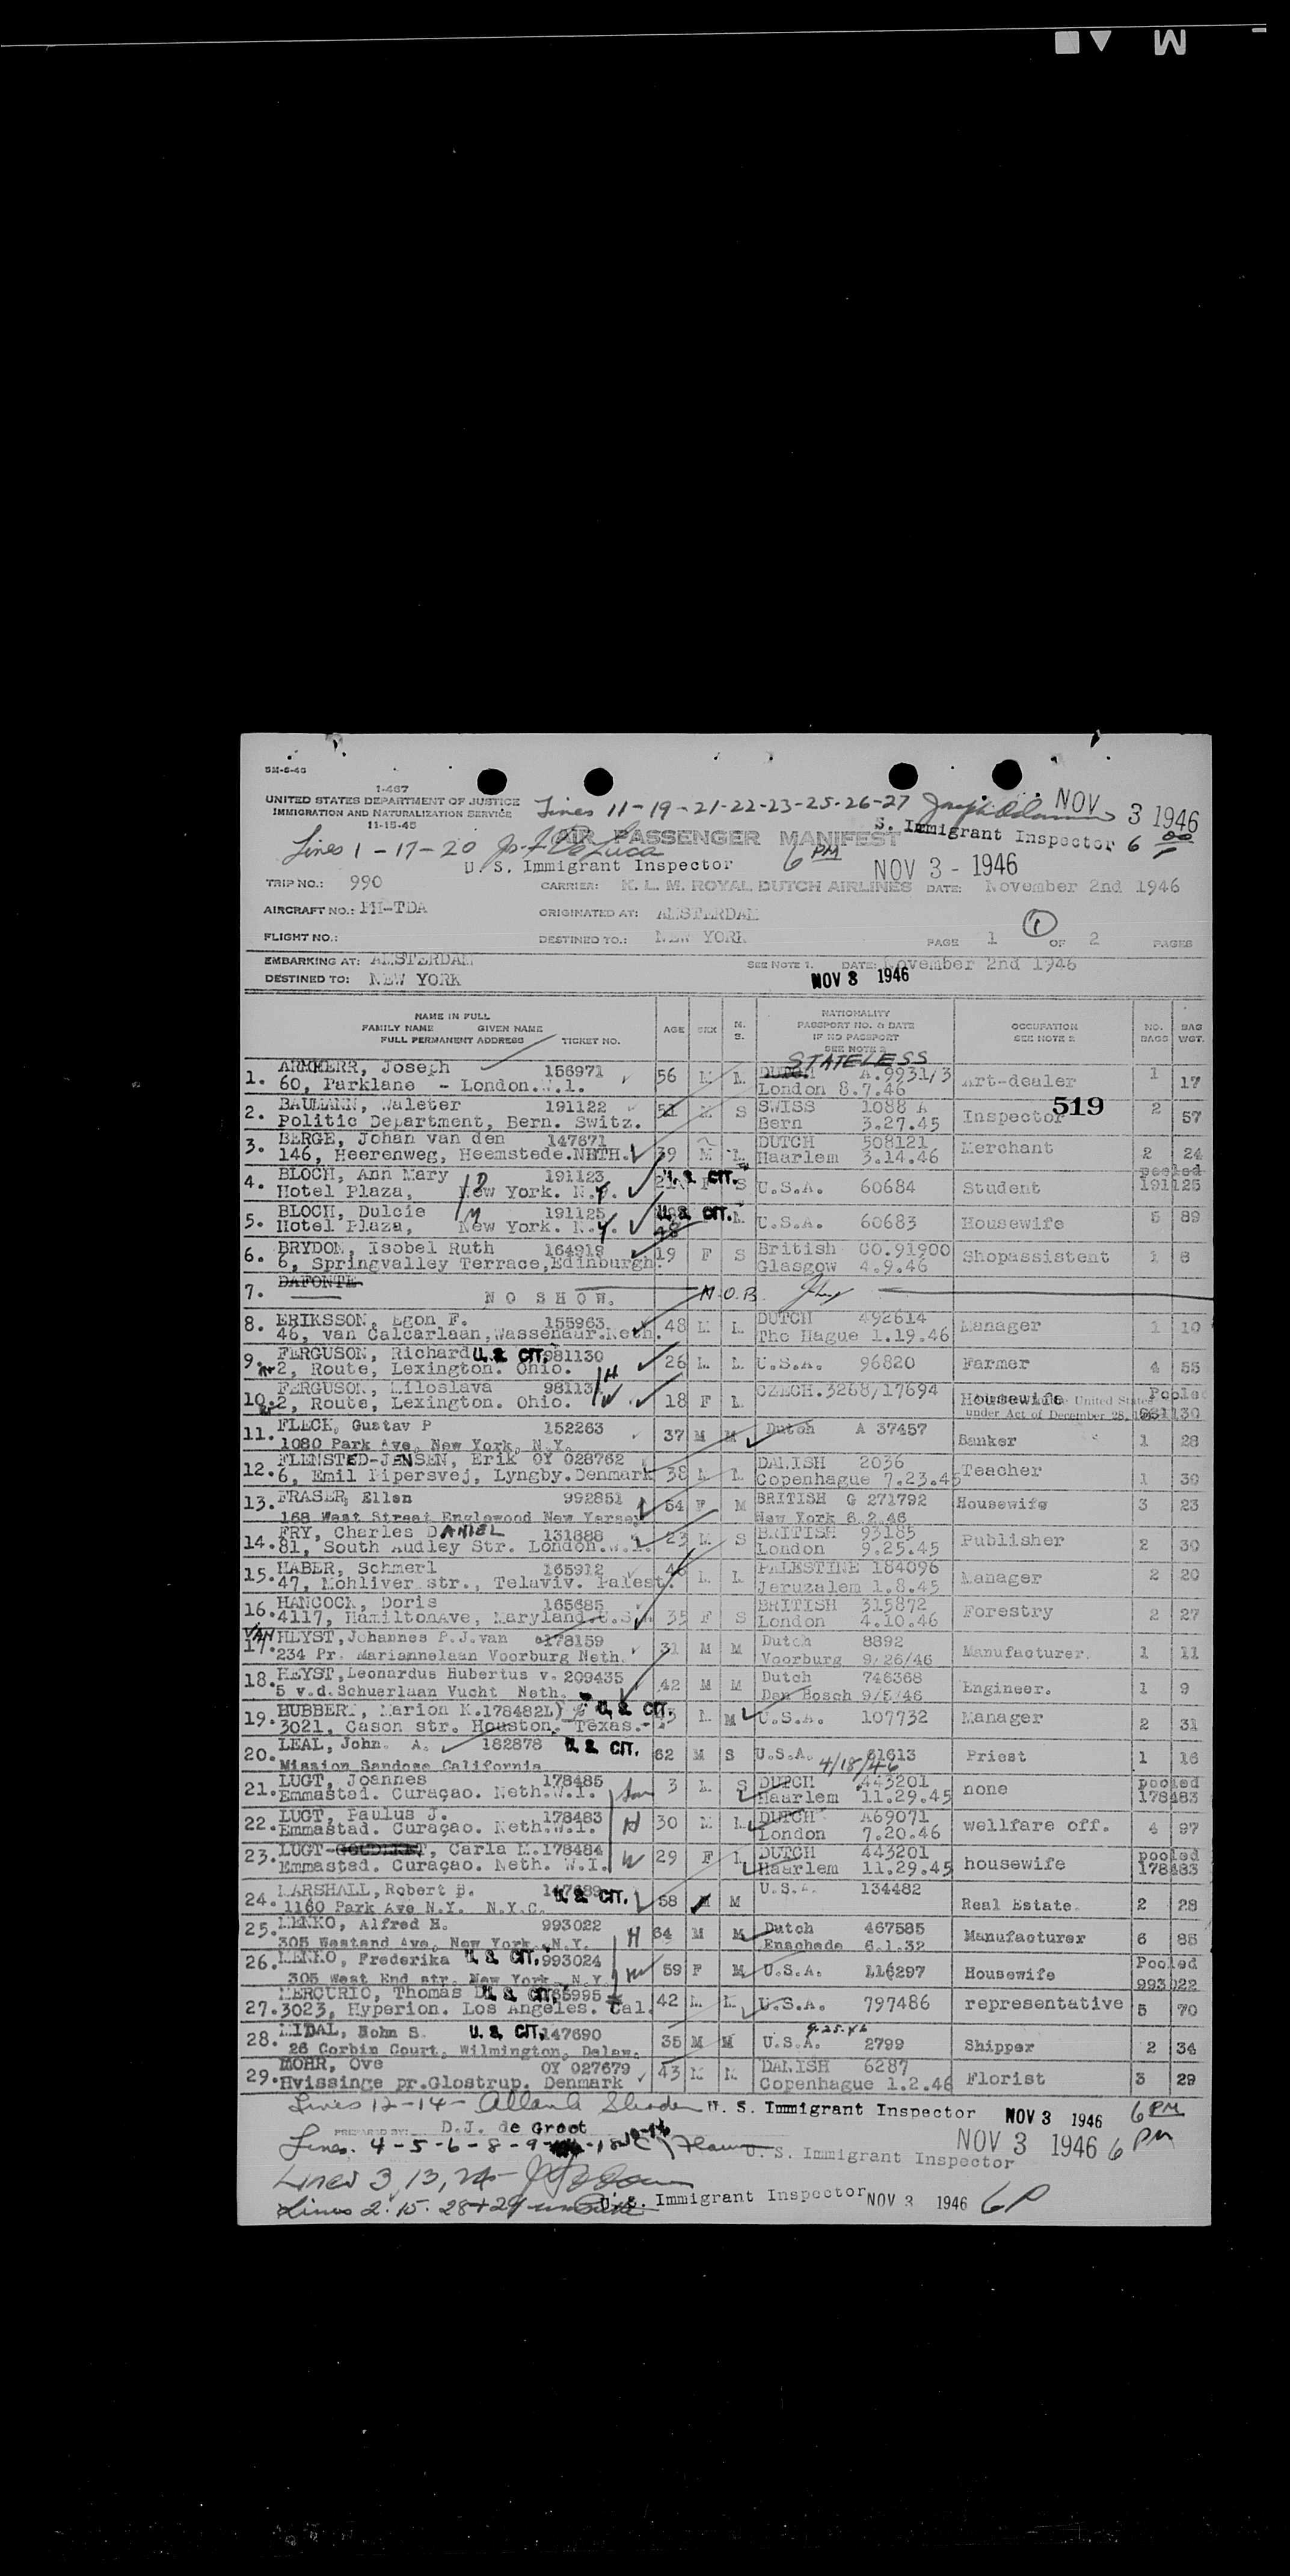 5M-6-46
1-467
UNITED STATES DEPARTMENT OF JUSTICE
IMMIGRATION AND NATURALIZATION SERVICE
11-15-45
Lines 11-19-21-22-23-25-26-27
NOV 3 1946
S. Immigrant Inspector 6 00
AIR PASSENGER MANIFEST
Lines 1-17-20
U. S. Immigrant Inspector
6 PM
NOV 3 - 1946
TRIP NO.: 990 CARRIER: K. L. M. ROYAL DUTCH AIRLINES DATE: November 2nd 1946
AIRCRAFT NO.: PH-TDA ORIGINATED AT: AMSTERDAM
FLIGHT NO.: DESTINED TO.: NEW YORK PAGE 1 OF 2 PAGES
1
EMBARKING AT: AMSTERDAM SEE NOTE 1. DATE: November 2nd 1946
DESTINED TO: NEW YORK NOV 3 1946
NAME IN FULL
FAMILY NAME GIVEN NAME
FULL PERMANENT ADDRESS TICKET NO. AGE SEX M. S. NATIONALITY PASSPORT NO. & DATE IF NO PASSPORT SEE NOTE 2 OCCUPATION SEE NOTE 2 NO. BAGS BAG WGT.
STATELESS
1. Joseph 156971 56 M DUTCH A.9931/3 Art-dealer 1 17
60, Parklane - London.W.1. London 8.7.46
519
2. BAUMANN, Waleter 191122 51 M S SWISS 1088 A Inspector 2 57
Politic Department, Bern. Switz. Bern 3.27.45
3. BERGE, Johan van den 147671 39 M DUTCH 508121 Merchant 2 24
146, Heerenweg, Heemstede.NETH. Haarlem 3.14.46
4. BLOCH, Ann Mary 191123 U. S. CIT. S U.S.A. 60684 Student pooled 191125
Hotel Plaza, New York. N.Y.
5. BLOCH, Dulcie 191125 48 U. S. CIT. U.S.A. 60683 Housewife 5 89
Hotel Plaza, New York. N.Y.
6. BRYDON, Isobel Ruth 164919 19 F S British CO.91900 Shopassistent 1 8
6, Springvalley Terrace,Edinburgh. Glasgow 4.9.46
7. DAFONTE
NO SHOW. N.O.B.
8. ERIKSSON, Egon F. 155963 48 M DUTCH 492614 Manager 1 10
46, van Calcarlaan,Wassenaar.Neth. The Hague 1.19.46
9. FERGUSON, Richard U. S. CIT. 981130 26 M U.S.A. 96820 Farmer 4 55
2, Route, Lexington. Ohio.
10. FERGUSON, Miloslava 98113 18 F CZECH.3268/17694 Housewife Pooled 981130
2, Route, Lexington. Ohio. United States under Act of December 28,
11. FLECK, Gustav P 152263 37 M M Dutch A 37457 Banker 1 28
1080 Park Ave, New York, N.Y.
12. FLEMSTED-JENSEN, Erik OY 028762 38 M DANISH 2036 Teacher 1 30
6, Emil Pipersvej, Lyngby.Denmark Copenhague 7.23.45
13. FRASER, Ellen 992851 54 F M BRITISH G 271792 Housewife 3 23
168 West Street Englewood New Yersey New York 6.2.46
14. FRY, Charles DANIEL 131888 23 M S BRITISH 93185 Publisher 2 30
81, South Audley Str. London.W.1. London 9.25.45
15. HABER, Schmerl 165912 M PALESTINE 184096 Manager 2 20
47, Mohliver str., Telaviv. Palest. Jeruzalem 1.8.45
16. HANCOCK, Doris 165685 35 F S BRITISH 315872 Forestry 2 27
4117, HamiltonAve, Maryland.U.S.A London 4.10.46
VAN
17. HEYST, Johannes P.J.van 178159 31 M M Dutch 8892 Manufacturer. 1 11
234 Pr. Mariannelaan Voorburg Neth. Voorburg 9/26/46
18. HEYST,Leonardus Hubertus v. 209435 42 M M Dutch 746368 Engineer. 1 9
5 v.d.Schuerlaan Vucht Neth. Den Bosch 9/5/46
19. HUBBERT, Marion K.178482 U. S. CIT. M U.S.A. 107732 Manager 2 31
3021, Cason str. Houston. Texas.
20. LEAL, John. A. 182878 U. S. CIT. 62 M S U.S.A. 61613 Priest 1 16
Mission Sandose California 4/18/46
21. LUGT, Joannes 178485 Son 3 S DUTCH 443201 none pooled 178483
Emmastad. Curaçao. Neth.W.I. Haarlem 11.29.45
22. LUGT, Paulus J. 178483 H 30 M DUTCH A69071 wellfare off. 4 97
Emmastad. Curaçao. Neth.W.I. London 7.20.46
23. LUGT- , Carla M. 178484 W 29 F DUTCH 443201 housewife pooled 178483
Emmastad. Curaçao. Neth. W.I. Haarlem 11.29.45
24. MARSHALL, Robert B. U. S. CIT. 58 M M U.S.A. 134482 Real Estate. 2 28
1160 Park Ave N.Y. N.Y.C.
25. MENKO, Alfred H. 993022 H 64 M M Dutch 467585 Manufacturer 6 85
305 Westend Ave, New York, N.Y. Enschede 6.1.32
26. MENKO, Frederika U. S. CIT. 993024 W 59 F M U.S.A. 116297 Housewife Pooled 993022
305 West End str. New York. N.Y.
27. MERCURIO, Thomas U. S. CIT. 42 U.S.A. 797486 representative 5 70
3023, Hyperion. Los Angeles. Cal.
28. MIDAL, John S. U. S. CIT. 147690 35 M M U.S.A. 2799 Shipper 2 34
26 Corbin Court, Wilmington, Delaw. 9.25.46
29. MOHR, Ove OY 027679 43 M DANISH 6287 Florist 3 29
Hvissinge pr.Glostrup. Denmark Copenhague 1.2.46
Lines 12-14- U. S. Immigrant Inspector NOV 3 1946 6 PM
PREPARED BY: D.J. de Groot
Lines. 4-5-6-8-9- U. S. Immigrant Inspector NOV 3 1946 6 PM
Lines 3, 13, 24-
Lines 2. 15. 28+29 U. S. Immigrant Inspector NOV 3 1946 6P